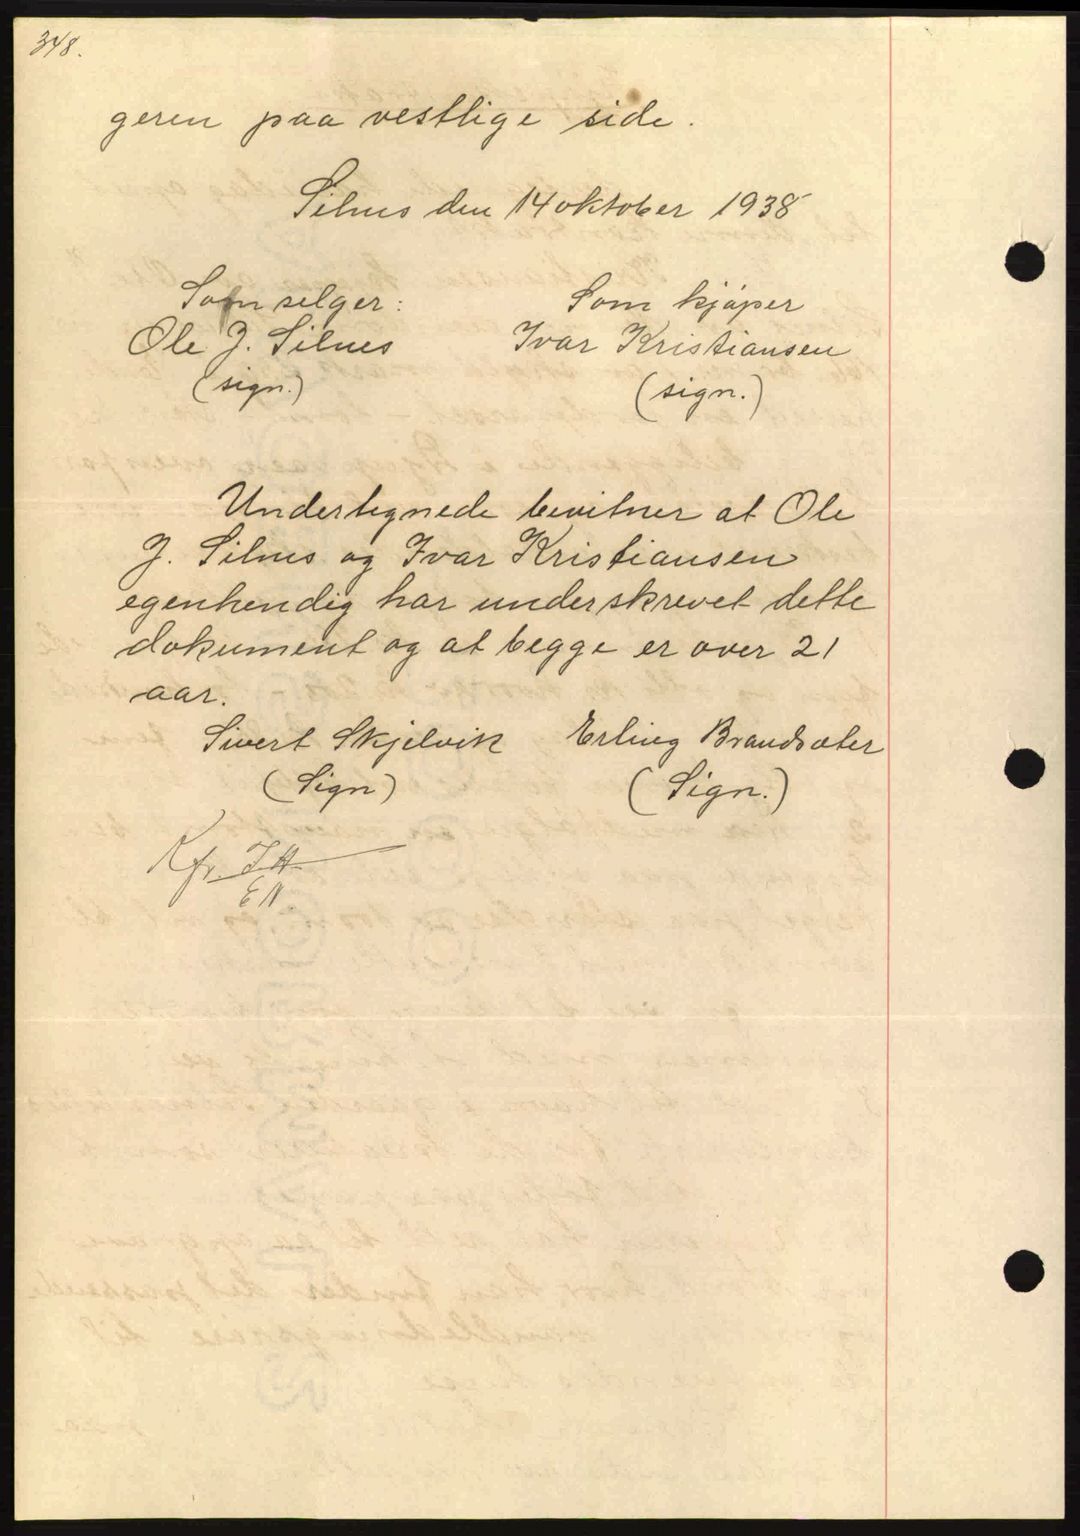 348.
geren paa vestlige side.
Silnes den 14 oktober 1938
Som selger:
Ole J. Silnes
(sign.)
Som kjøper
Ivar Kristiansen
(sign.)
Undertegnede bevitner at Ole
J. Silnes og Ivar Kristiansen
egenhendig har underskrevet dette
dokument og at begge er over 21
aar.
Sivert Skjelvik
(Sign)
Erling Brandsæter
(Sign.)
Kfr. IH
EN.